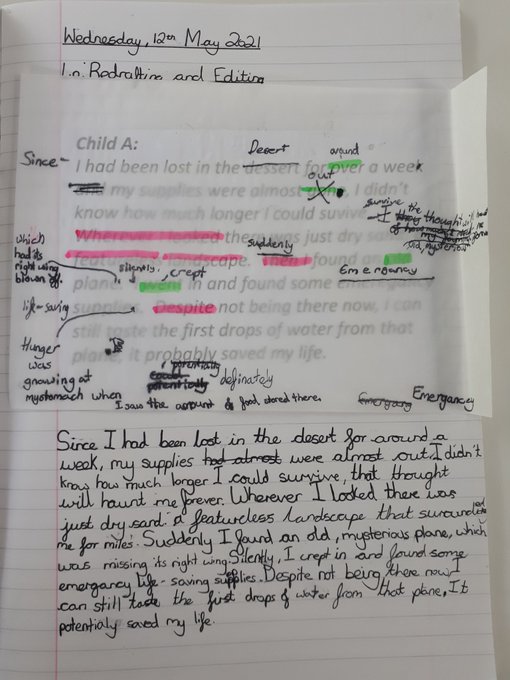 Wednesday, 12th May 2021
L.O: Redrafting and Editing
Child A:
Desert
around
Since -
I had been lost in the dessert for over a week
out
my supplies were almost I didn't
survive
know how much longer I could suvive
the thought
which had its right wing blown off.
Wherever I looked there was just dry sand
suddenly
featureless landscape. Then I found an old
silently, crept
Emergency
plane. I went in and found some emergancy
life-saving
supplies. Despite not being there now, I can
still taste the first drops of water from that
plane, it probably saved my life.
Hunger was gnowing at my stomach when
I saw the amount of food stored there.
potentially
could
potentially
definately
Emergancy
Since I had been lost in the desert for around a
weak, my supplies had almost were almost out. I didn't
know how much longer I could survive, that thought
will haunt me forever. Wherever I looked there was
just dry sand: a featureless landscape that surrounded
me for miles. Suddenly I found an old, mysterious plane, which
was missing its right wing. Silently, I crept in and found some
emergancy life-saving supplies. Despite not being there now I
can still taste the first drops of water from that plane, It
potentialy saved my life.